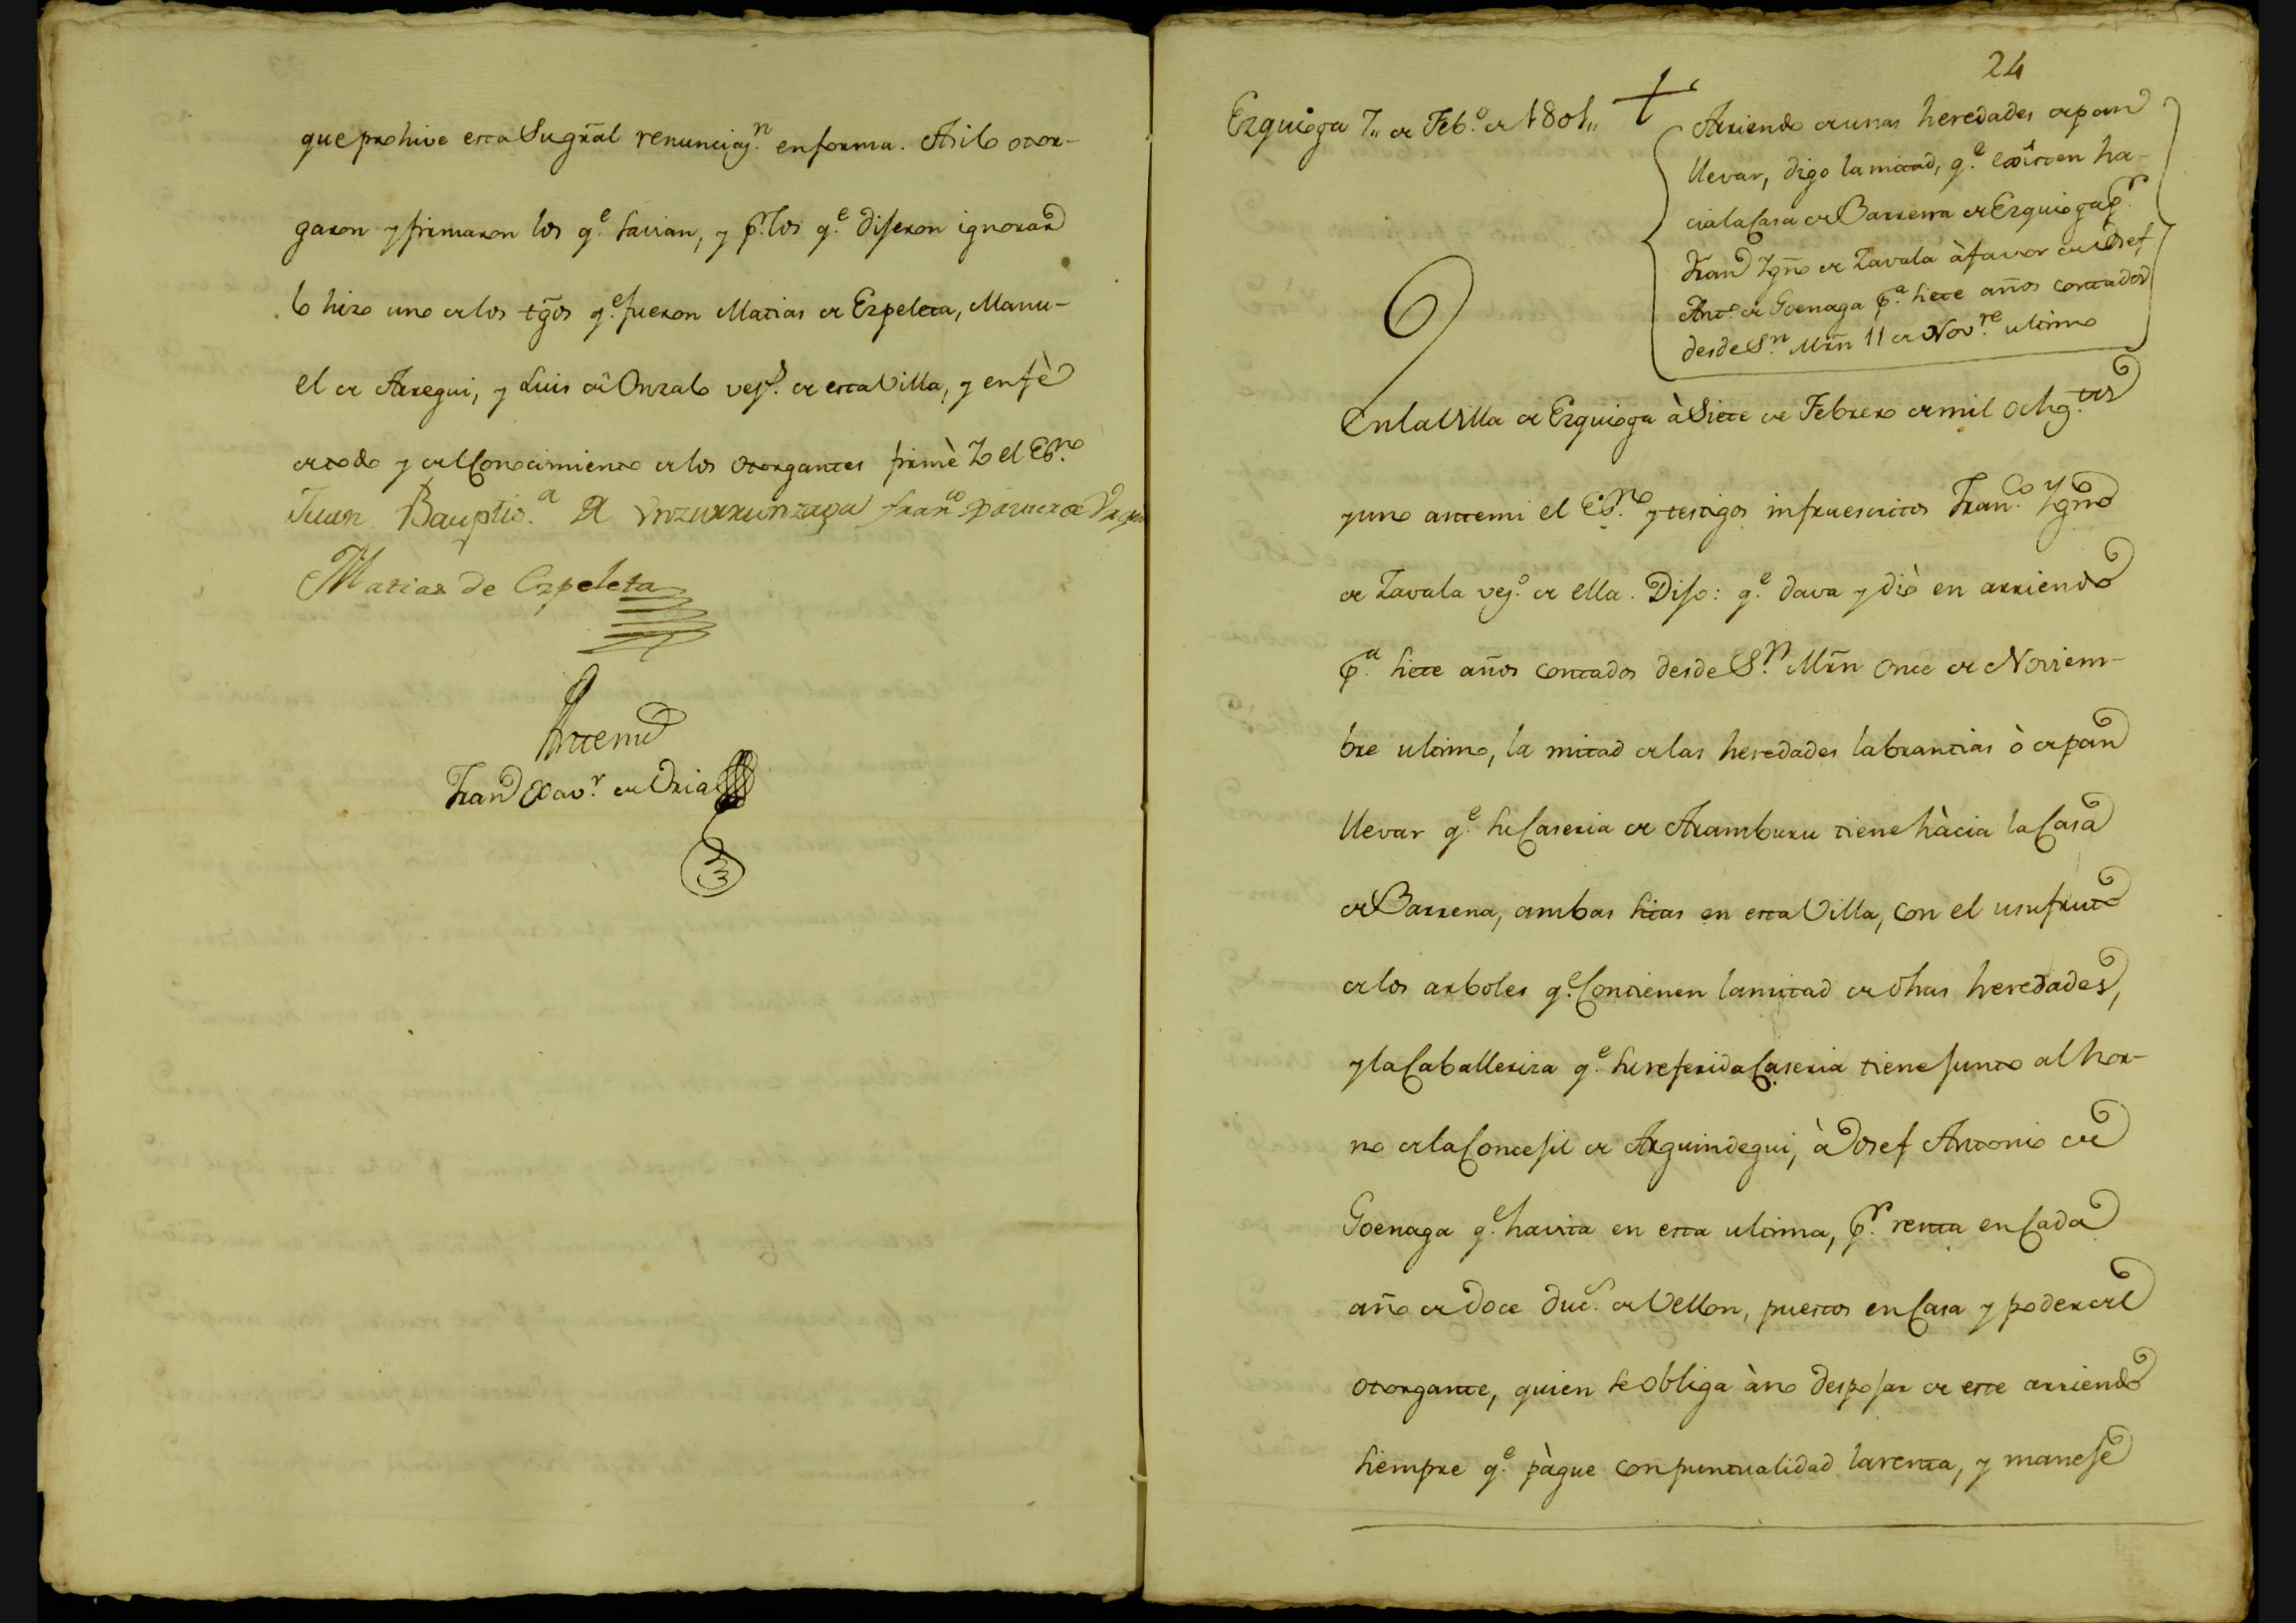 que prohive esta Su gr̃al renunciaz.n en forma. Asi lo otor-
garon y firmaron los q.e savian, y p.r los q.e dijeron ignorar
lo hizo uno de los tg̃os q.e fueron Matias de Ezpeleta, Manu-
el de Arregui, y Luis de Onzalo vez.s de esta Villa, y en fè
de todo y del Conocimiento de los otorgantes firmè Yo el Es.no
Juan Baupti.a de Ynzurrunzaga Fran.co
Matias de Ezpeleta
Antemi
Fran.co Xav.r de Oria
24
Ezquioga 7,, de Feb.o de 1801,,
Arriendo de unas heredades de pan
llevar, digo la mitad, q.e existen ha-
cia la Casa de Barrena de Ezquioga p.r
Fran.co Ygn.o de Zavala à favor de Josef
Ant.o de Goenaga p.a siete años contados
desde S.n Mrñ 11 de Nov.re ultimo
En la Villa de Ezquioga à Siete de Febrero de mil ochoz.tos
y uno ante mi el Es.no y testigos infraescritos Fran.co Ygn.o
de Zavala vez.o de ella. Dijo: q.e dava y diò en arriendo
p.a siete años contados desde S.n Mrñ once de Noviem-
bre ultimo, la mitad de las heredades labrantias ò de pan
llevar q.e su Caseria de Aramburu tiene hàcia la Casa
de Barrena, ambas sitas en esta Villa, con el usufruto
de los arboles q.e Contienen la mitad de dhas heredades,
y la Caballeriza q.e su referida Caseria tiene junto al hor-
no de la Concejil de Arguindegui, à Josef Antonio de
Goenaga q.e havita en esta ultima, p.r renta en Cada
año de doce duc.s de Vellon, puestos en Casa y poder del
otorgante, quien se obliga à no despojar de este arriendo
siempre q.e pàgue con puntualidad la renta, y maneje